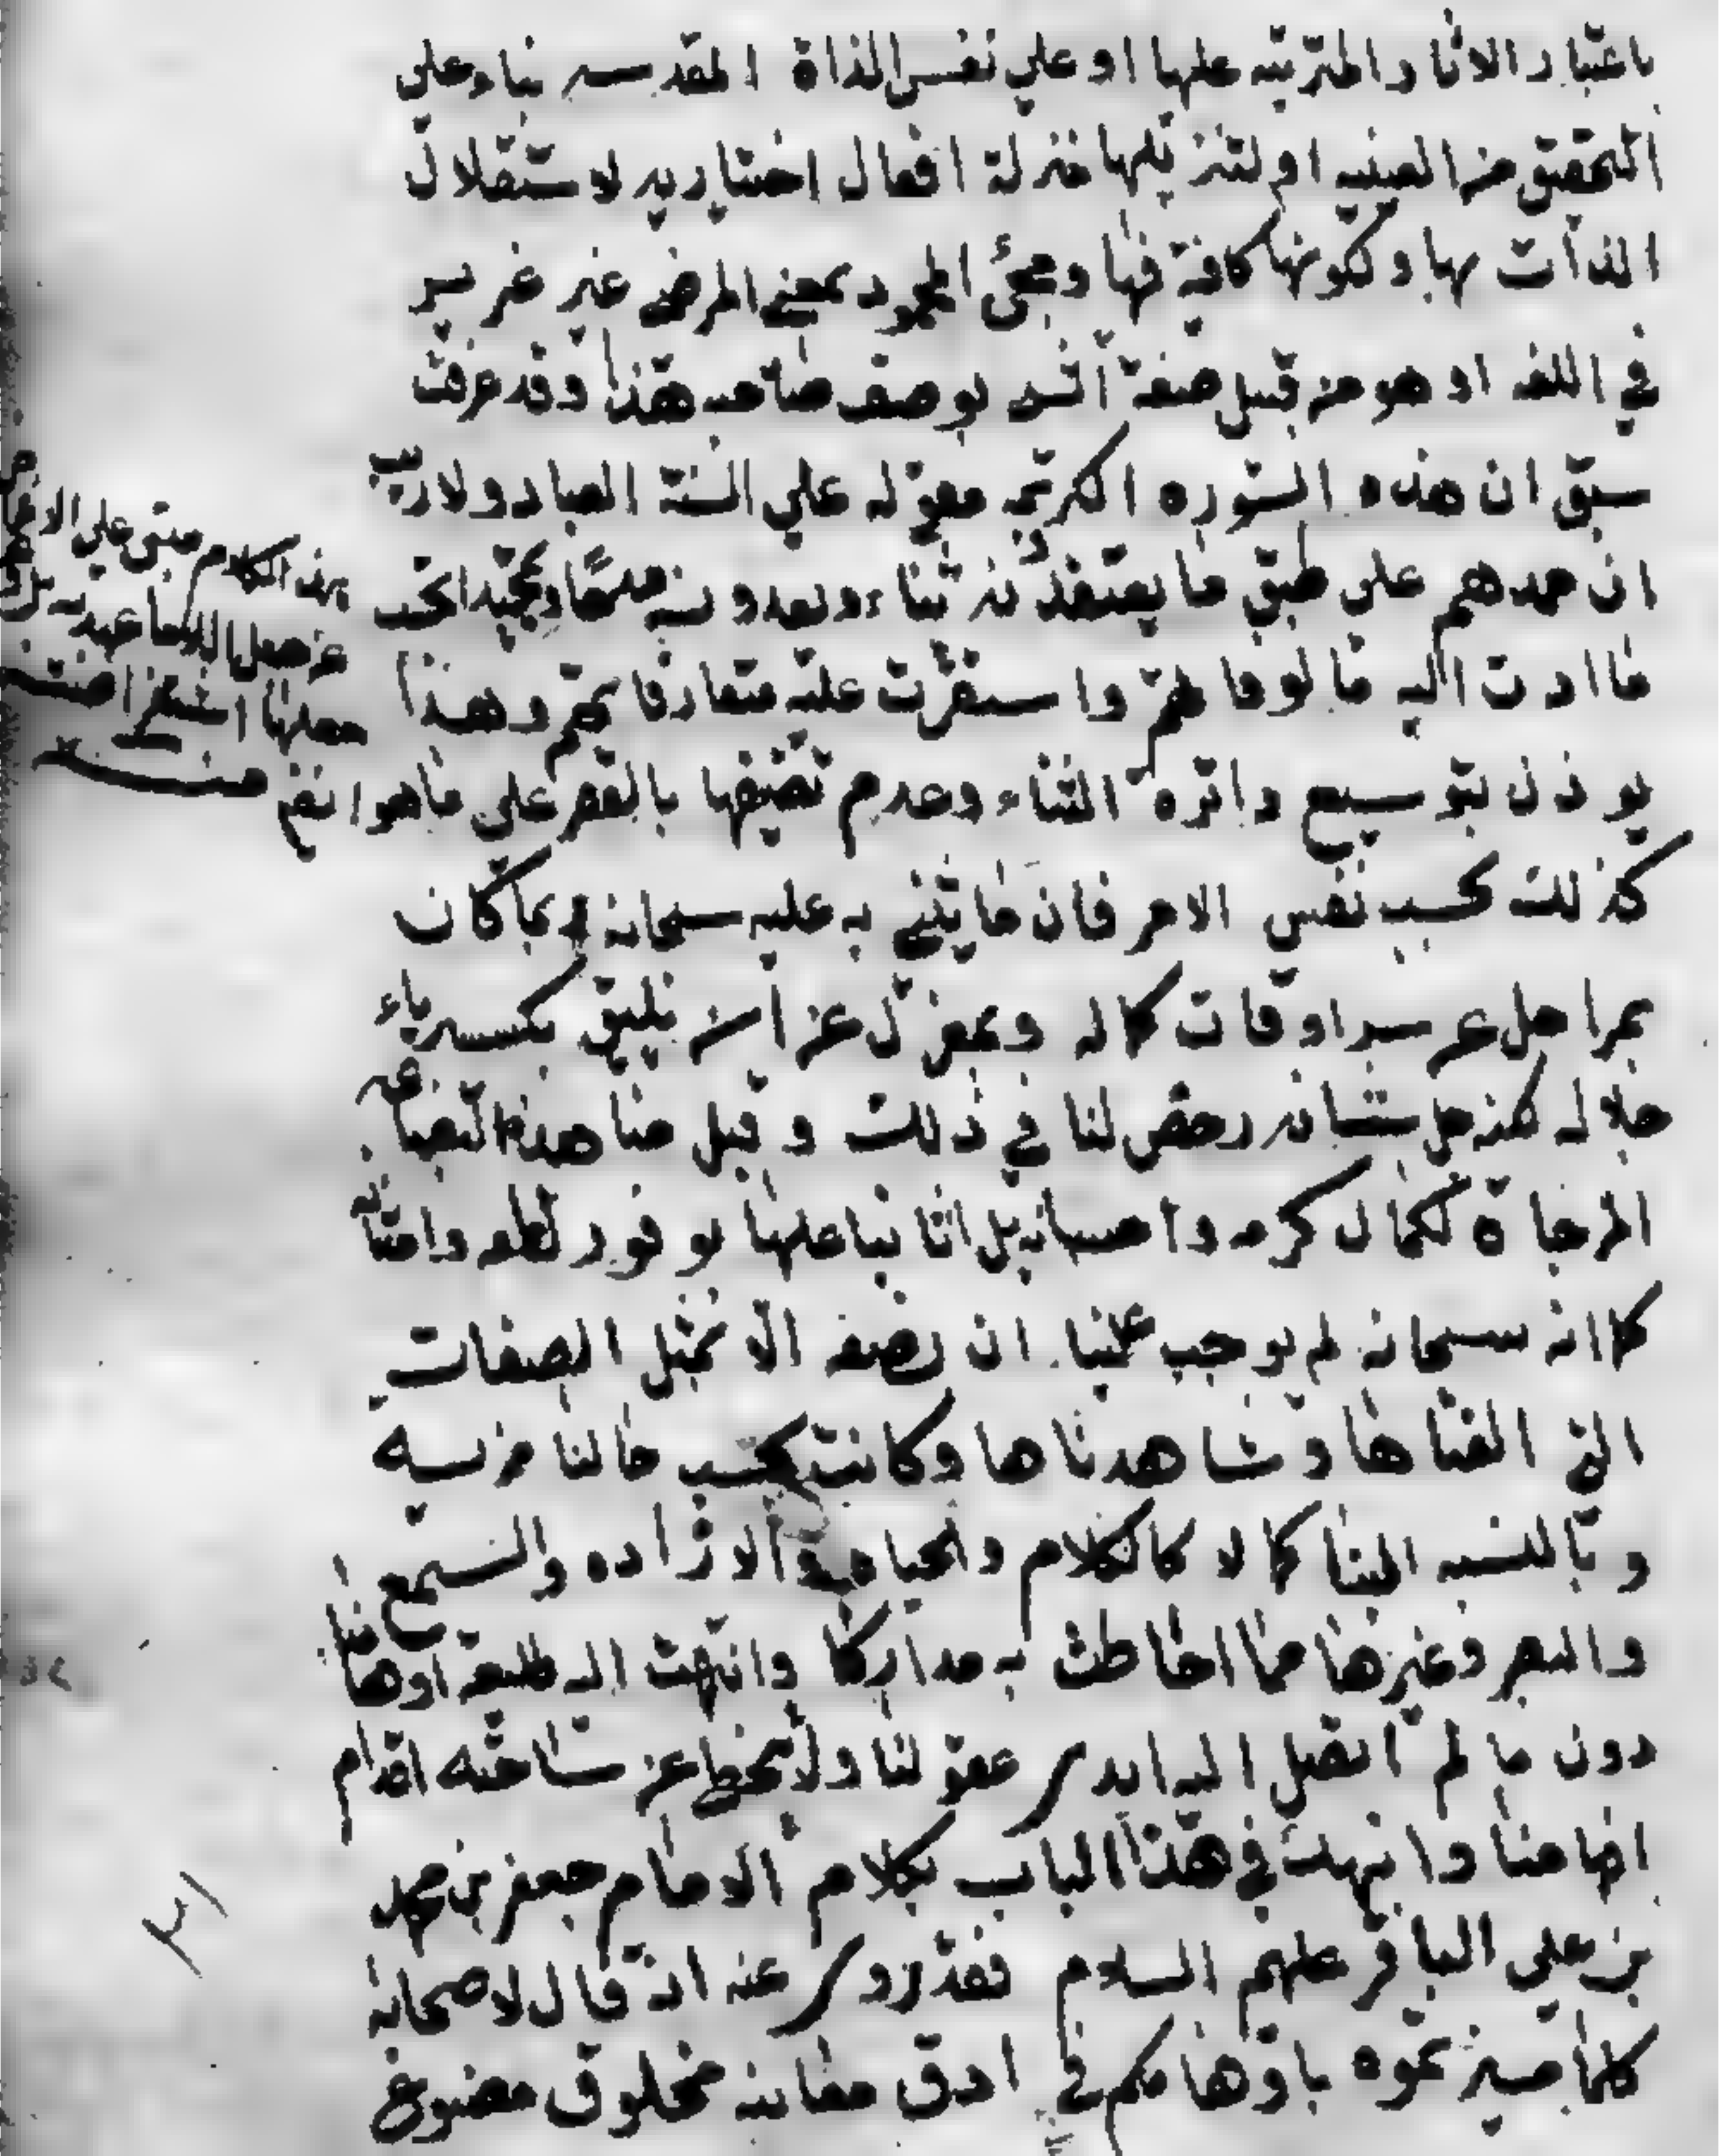 باعتبار الاثار المترتبه عليها او علي نفس الذاة المقدسه بناء علي
التحقيق من العينيه او لتنزيلها منزلة افعال اختياريه لاستقلال
الذات بها وكونها كافية فيها ومجئ المحمود بمعني المرضي غير غريب
في اللغه او هو من قبيل صفة الشي بوصف صاحبه هذا وقد عرفت
سبق ان هذه السوره الكريمه مقوله علي السنة العباد ولا ريب
ان حمدهم علي طبق ما يعتقدونه ثناء ويعدونه مدحا وتمجيدا بحسب
ما ادت اليه مالوفاتهم واستقرت عليه متعارفاتهم وهذا
يوذن بتوسيع دائره الثناء وعدم تضيقها بالقصر علي ما هو ايضا
كذلك بحسب نفس الامر فان ما يثني به عليه سبحانه ربما كان
بمراحل عن سرادقات كماله وبمعزل عن ان يليق بكبرياء
جلاله لكنه جل شانه رخص لنا في ذلك وقبل منا هذه البضاعه
المزجاة لكمال كرمه واحسانه بل اثابنا عليها بوفور لطفه وامتنانه
كما انه سبحانه لم يوجب علينا ان نصفه الا بمثل الصفات
التي الفناها وشاهدناها وكانت بحسب حالنا مزيه
وبالنسبه الينا كمالا كالكلام والحياه والاراده والسمع
والبصر وغيرها مما احاطت به مداركنا وانتهت اليه طليعة اوهامنا
دون ما لم تصل اليه ايدي عقولنا ولا تخط عن ساحته اقدام
افهامنا وانتهت في هذا الباب بكلام الامام جعفر بن محمد
بن علي الباقر عليهم السلام فقد روي عنه انه قال لاصحابه
كلما ميزتموه باوهامكم في ادق معانيه مخلوق مصنوع
هذا الكلام مبني علي
عن جعل
منه